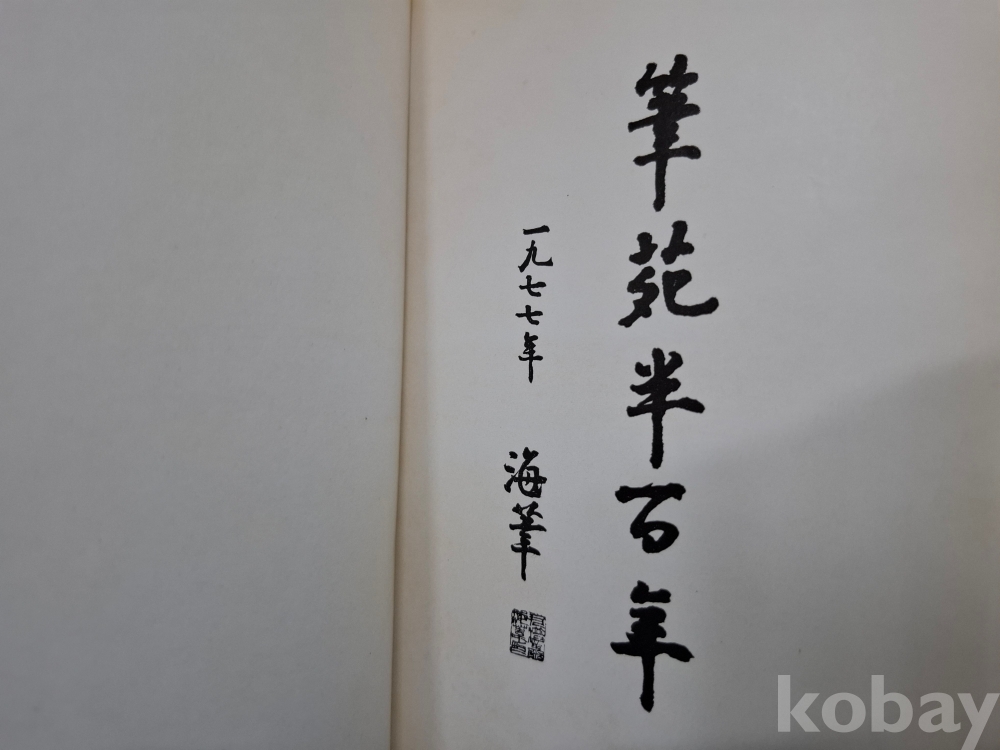 筆苑半百年
一九七七年 海葦
kobay